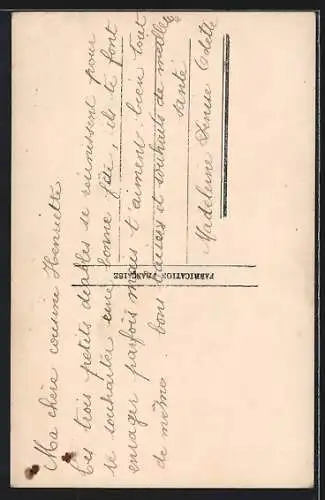 Ma chère cousine Henriette
Ces trois petits diables se réunissent pour
te souhaiter une bonne fête, ils te font
enrager parfois mais t'aiment bien tout
de même. bons baisers et souhaits de meilleure
santé
Madeleine Odette
FABRICATION FRANÇAISE